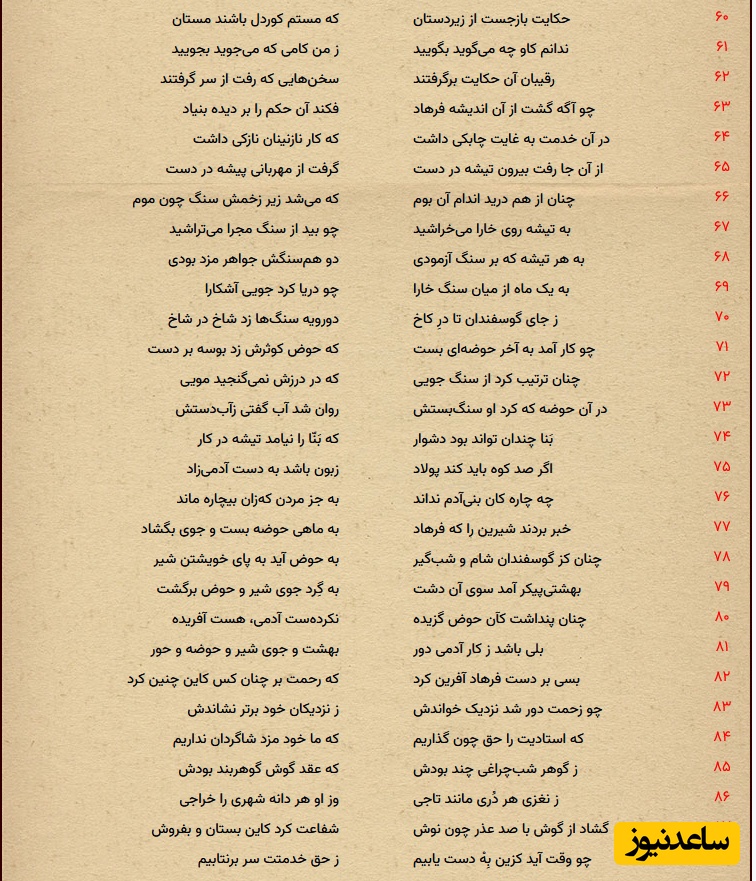 ۶۰ حکایت بازجست از زیردستان که مستم کوردل باشند مستان
۶۱ ندانم کاو چه می‌گوید بگویید ز من کامی که می‌جوید بجویید
۶۲ رقیبان آن حکایت برگرفتند سخن‌هایی که رفت از سر گرفتند
۶۳ چو آگه گشت از آن اندیشه فرهاد فکند آن حکم را بر دیده بنیاد
۶۴ در آن خدمت به غایت چابکی داشت که کار نازنینان نازکی داشت
۶۵ از آن جا رفت بیرون تیشه در دست گرفت از مهربانی پیشه در دست
۶۶ چنان از هم درید اندام آن بوم که می‌شد زیر زخمش سنگ چون موم
۶۷ به تیشه روی خارا می‌خراشید چو بید از سنگ مجرا می‌تراشید
۶۸ به هر تیشه که بر سنگ آزمودی دو هم‌سنگش جواهر مزد بودی
۶۹ به یک ماه از میان سنگ خارا چو دریا کرد جویی آشکارا
۷۰ ز جای گوسفندان تا درِ کاخ دورویه سنگ‌ها زد شاخ در شاخ
۷۱ چو کار آمد به آخر حوضه‌ای بست که حوض کوثرش زد بوسه بر دست
۷۲ چنان ترتیب کرد از سنگ جویی که در درزش نمی‌گنجید مویی
۷۳ در آن حوضه که کرد او سنگ‌بستش روان شد آب گفتی زآب‌دستش
۷۴ بَنا چندان تواند بود دشوار که بَنّا را نیامد تیشه در کار
۷۵ اگر صد کوه باید کند پولاد زبون باشد به دست آدمی‌زاد
۷۶ چه چاره کان بنی‌آدم نداند به جز مردن که‌زان بیچاره ماند
۷۷ خبر بردند شیرین را که فرهاد به ماهی حوضه بست و جوی بگشاد
۷۸ چنان کز گوسفندان شام و شب‌گیر به حوض آید به پای خویشتن شیر
۷۹ بهشتی‌پیکر آمد سوی آن دشت به گِرد جوی شیر و حوض برگشت
۸۰ چنان پنداشت کآن حوض گزیده نکرده‌ست آدمی، هست آفریده
۸۱ بلی باشد ز کار آدمی دور بهشت و جوی شیر و حوضه و حور
۸۲ بسی بر دست فرهاد آفرین کرد که رحمت بر چنان کس کاین چنین کرد
۸۳ چو زحمت دور شد نزدیک خواندش ز نزدیکان خود برتر نشاندش
۸۴ که استادیت را حق چون گذاریم که ما خود مزد شاگردان نداریم
۸۵ ز گوهر شب‌چراغی چند بودش که عقد گوش گوهربند بودش
۸۶ ز نغزی هر دُری مانند تاجی وز او هر دانه شهری را خراجی
گشاد از گوش با صد عذر چون نوش شفاعت کرد کاین بستان و بفروش
چو وقت آید کزین بِهْ دست یابیم ز حق خدمتت سر برنتابیم
ساعدنیوز